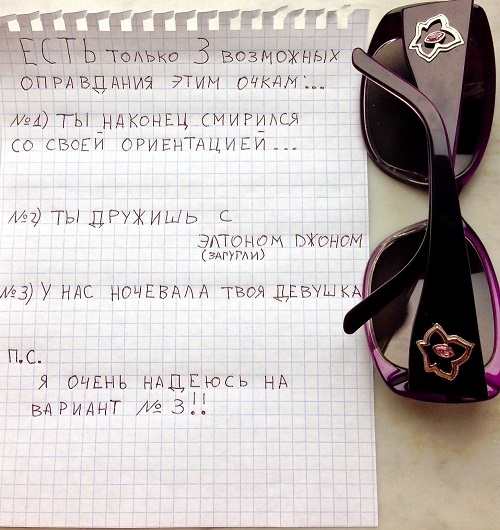 ЕСТЬ только 3 возможных
оправдания этим очкам...
№1) Ты наконец смирился
со своей ориентацией...
№2) Ты дружишь с
Элтоном Джоном
(загугли)
№3) У нас ночевала твоя девушка
П.С.
Я очень надеюсь на
вариант №3!!